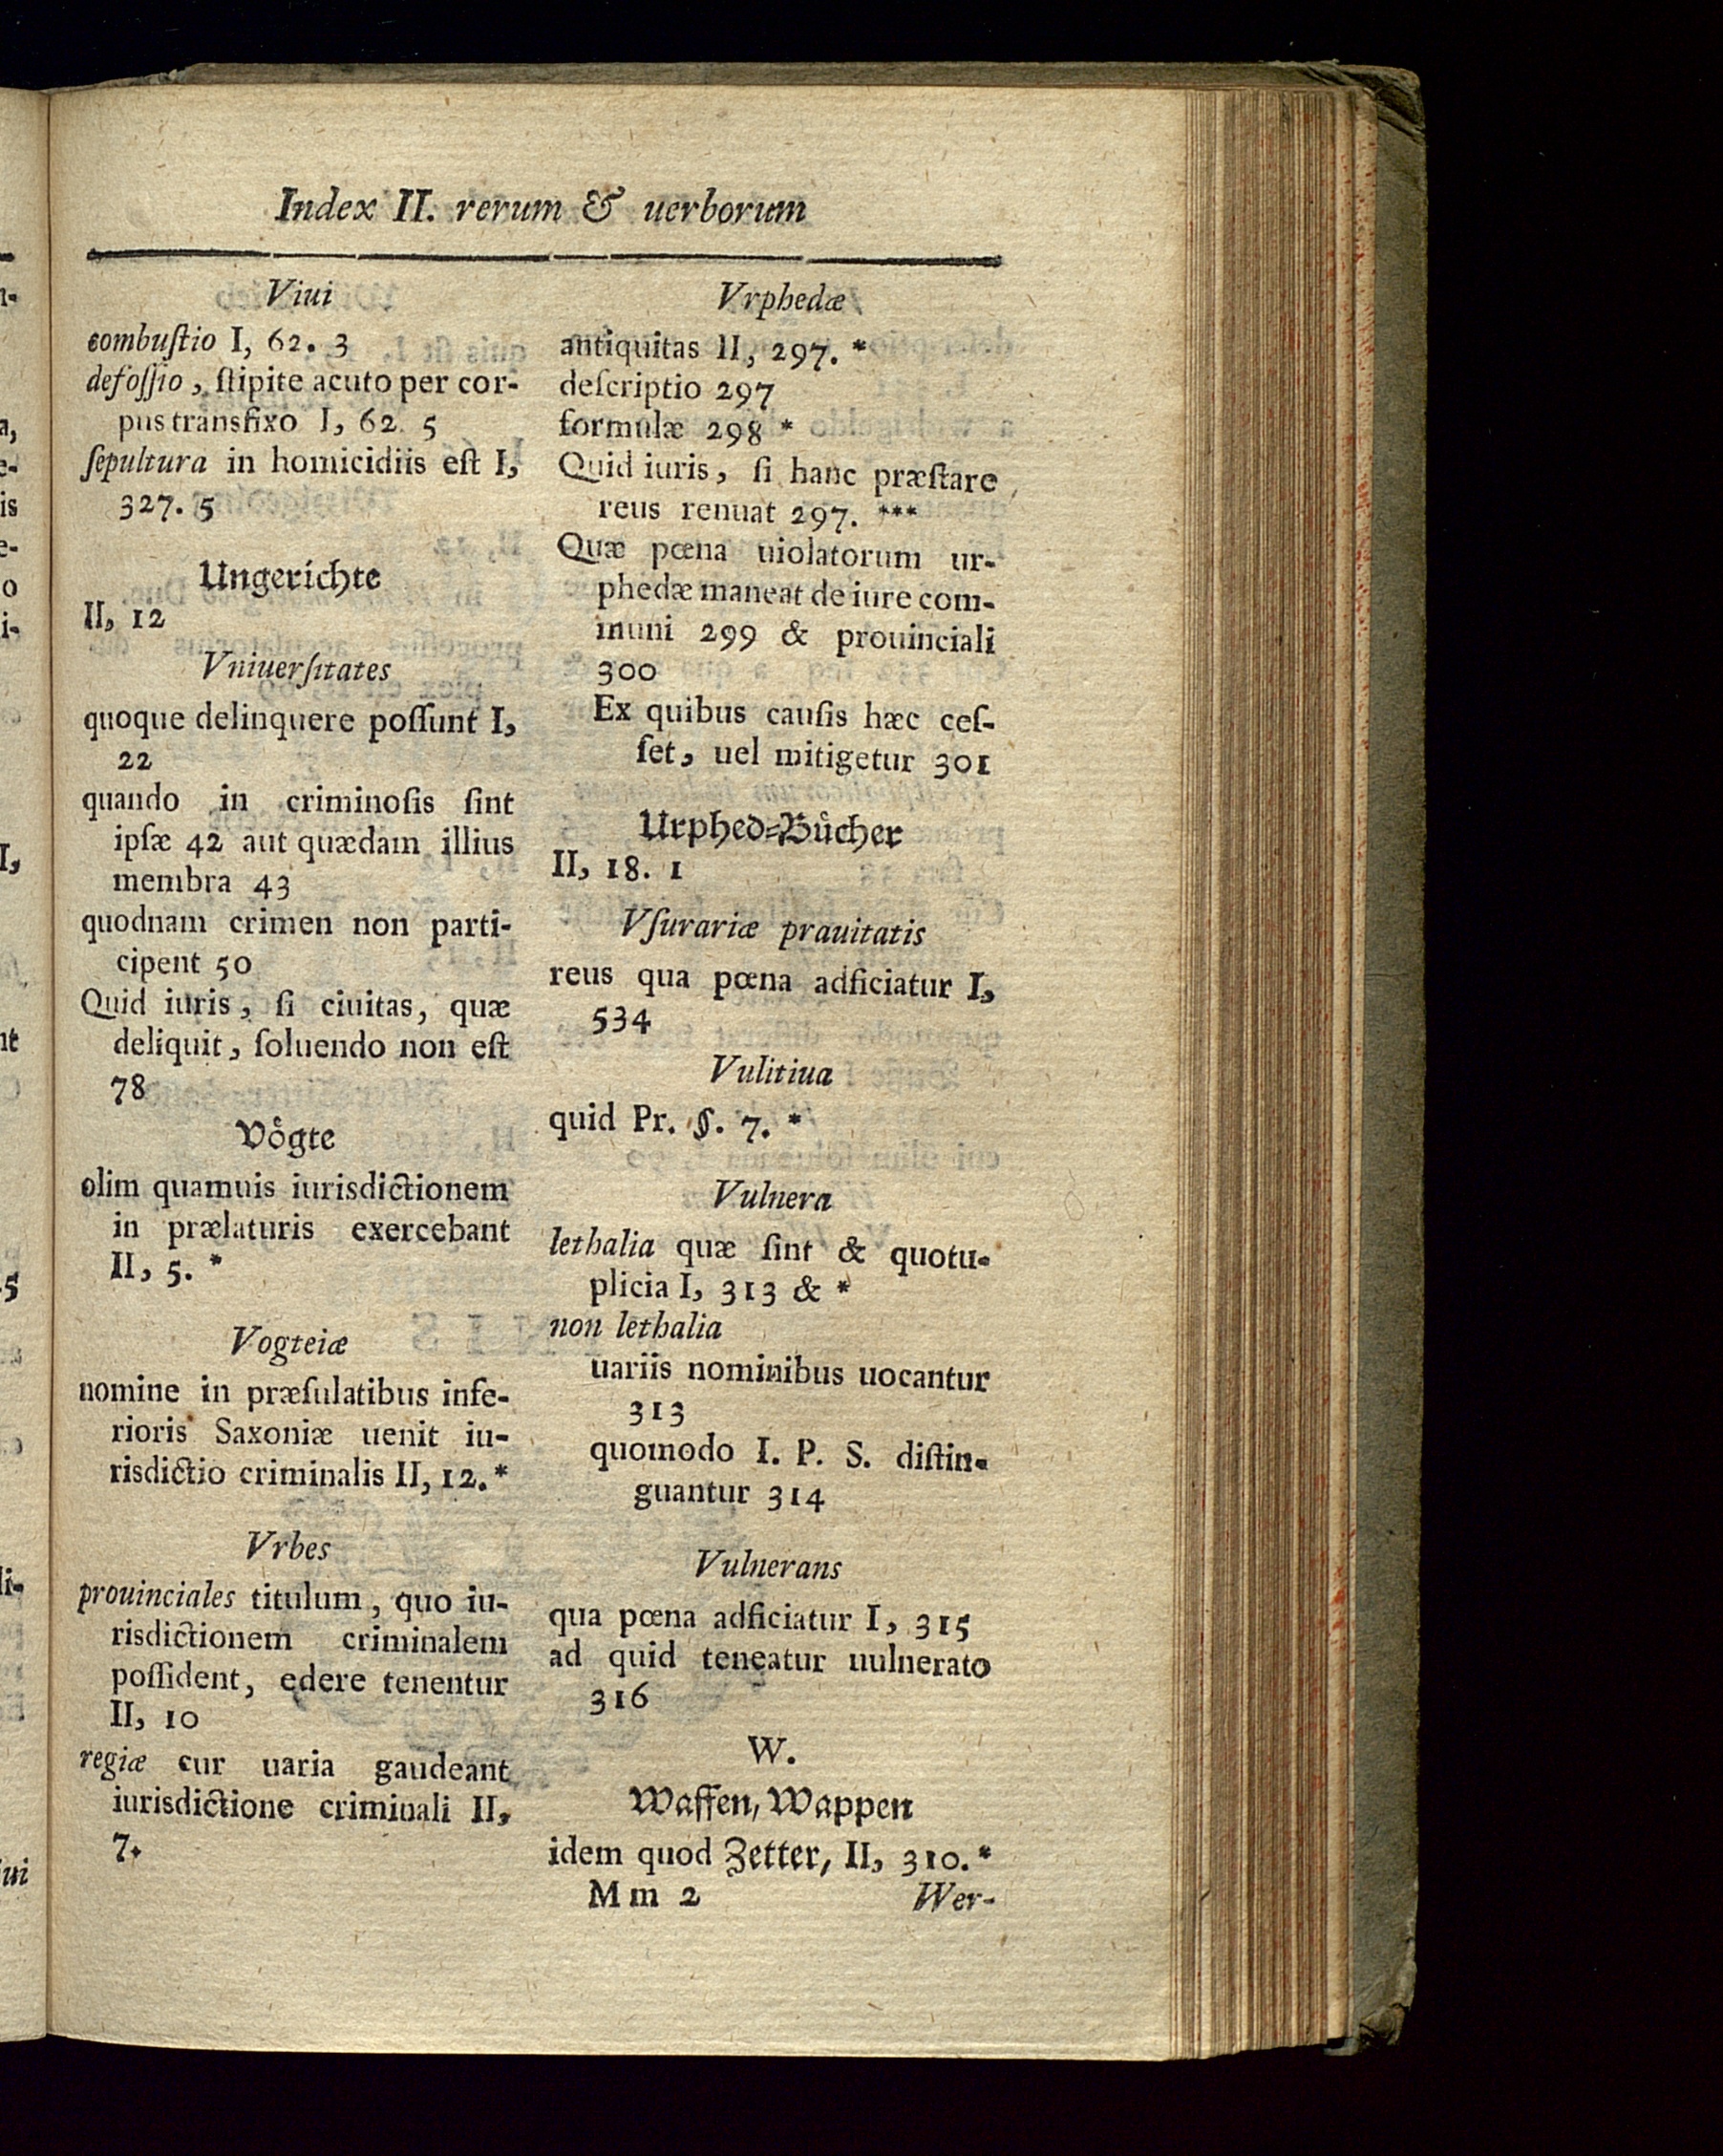 Index II. rerum & uerborum
Viui
combuſtio I, 62. 3
defoſſio, ſtipite acuto per cor-
pus transfixo I, 62. 5
ſepultura in homicidiis eſt I,
327. 5
Ungerichte
II, 12
Vniuerſitates
quoque delinquere poſſunt I,
22
quando in criminoſis ſint
ipſæ 42 aut quædam illius
membra 43
quodnam crimen non parti-
cipent 50
Quid iuris, ſi ciuitas, quæ
deliquit, ſoluendo non eſt
78
Voͤgte
olim quamuis iurisdictionem
in prælaturis exercebant
II, 5. *
Vogteiæ
nomine in præſulatibus infe-
rioris Saxoniæ uenit iu-
risdictio criminalis II, 12. *
Vrbes
prouinciales titulum, quo iu-
risdictionem criminalem
poſſident, edere tenentur
II, 10
regiæ cur uaria gaudeant
iurisdictione criminali II,
7.
Vrphedæ
antiquitas II, 297. *
deſcriptio 297
formulæ 298 *
Quid iuris, ſi hanc præſtare
reus renuat 297. ***
Quæ pœna uiolatorum ur-
phedæ maneat de iure com-
muni 299 & prouinciali
300
Ex quibus cauſis hæc ceſ-
ſet, uel mitigetur 301
Urphed=Buͤcher
II, 18. 1
Vſurariæ prauitatis
reus qua pœna adficiatur I,
534
Vulitiua
quid Pr. §. 7. *
Vulnera
lethalia quæ ſint & quotu-
plicia I, 313 & *
non lethalia
uariis nominibus uocantur
313
quomodo I. P. S. diſtin-
guantur 314
Vulnerans
qua pœna adficiatur I, 315
ad quid teneatur uulnerato
316
W.
Waffen, Wappen
idem quod Zetter, II, 310. *
M m 2 Wer-